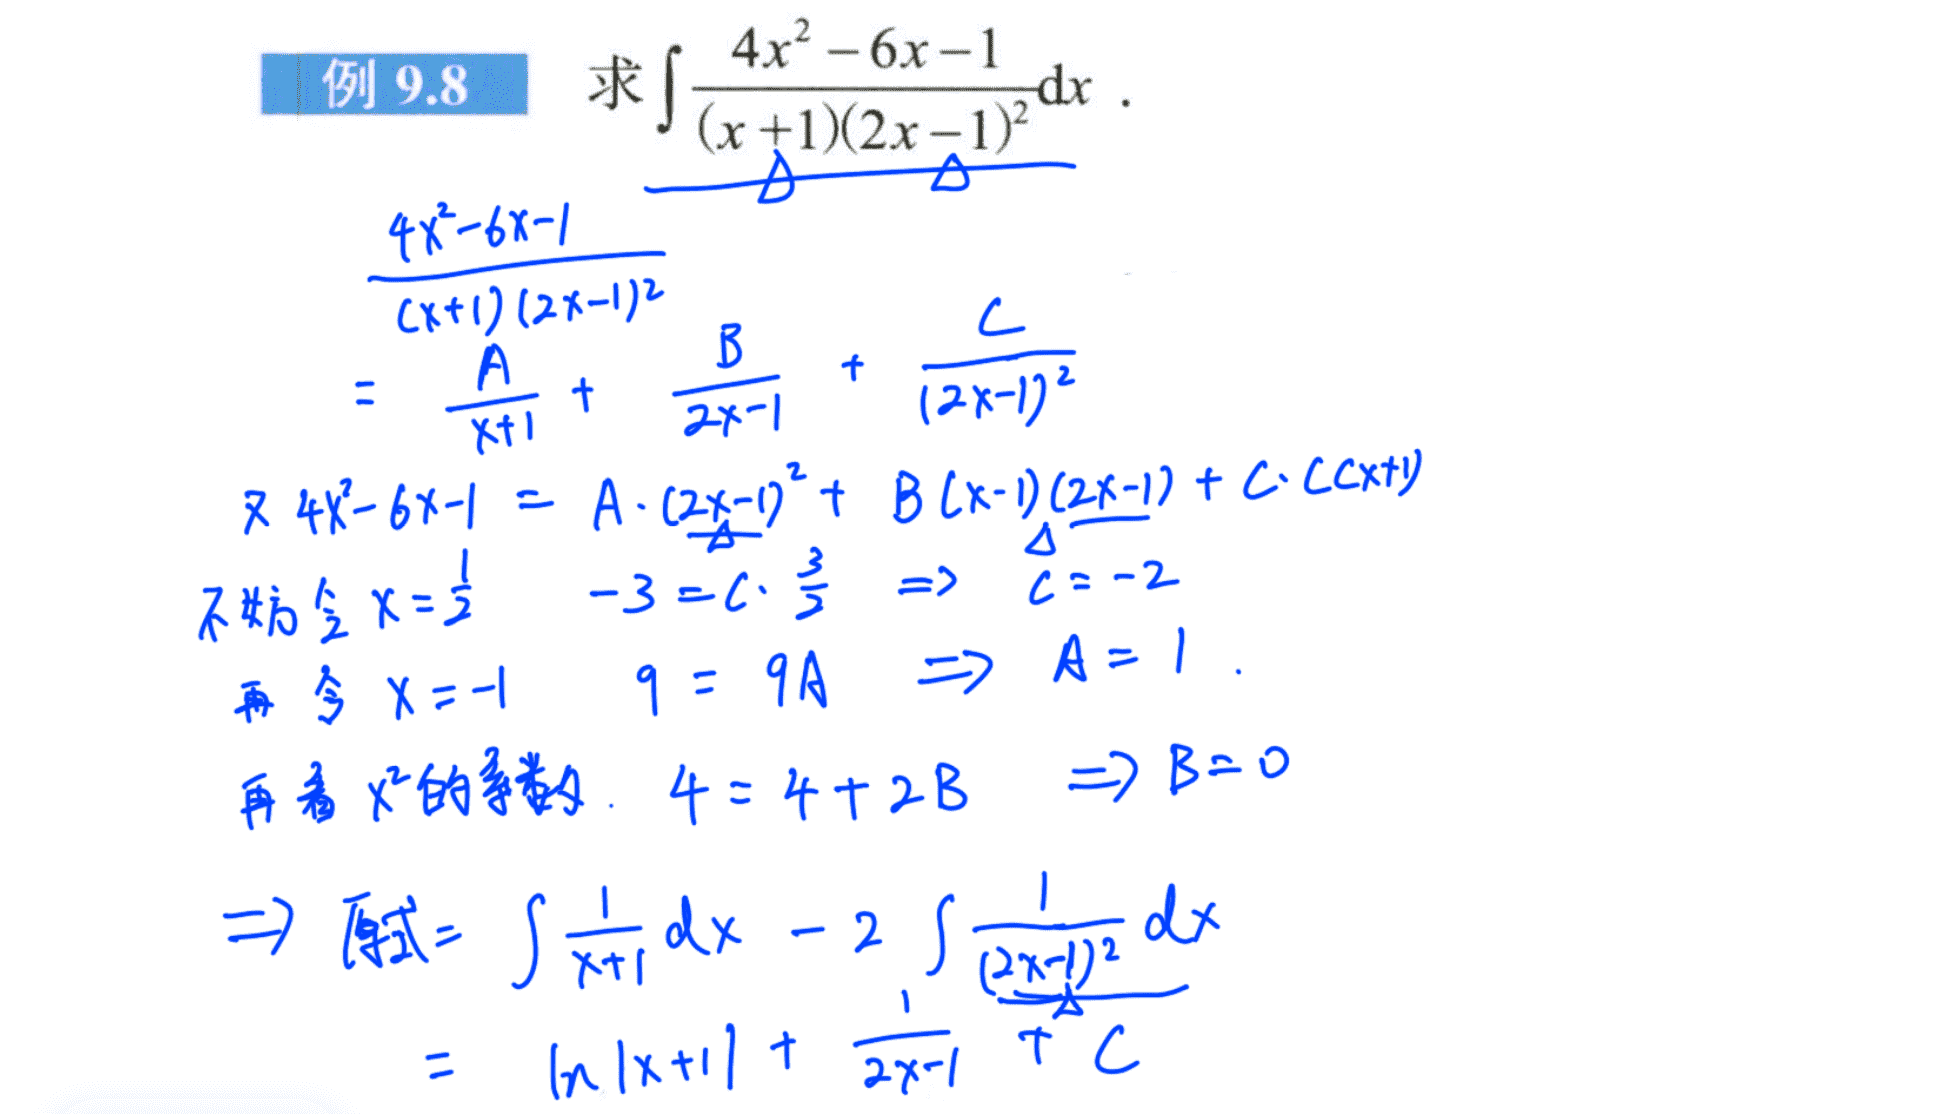 例 9.8 求∫ (4x² − 6x − 1)/((x+1)(2x−1)²) dx .
(4x²−6x−1)/((x+1)(2x−1)²)
= A/(x+1) + B/(2x−1) + C/(2x−1)²
又 4x²−6x−1 = A·(2x−1)² + B(x−1)(2x−1) + C·C(x+1)
不妨令 x=1/2 −3=C·3/2 => C=−2
再令 x=−1 9=9A => A=1.
再看x²的系数. 4=4+2B => B=0
=> 原式= ∫ 1/(x+1) dx − 2 ∫ 1/(2x−1)² dx
= ln|x+1| + 1/(2x−1) + C